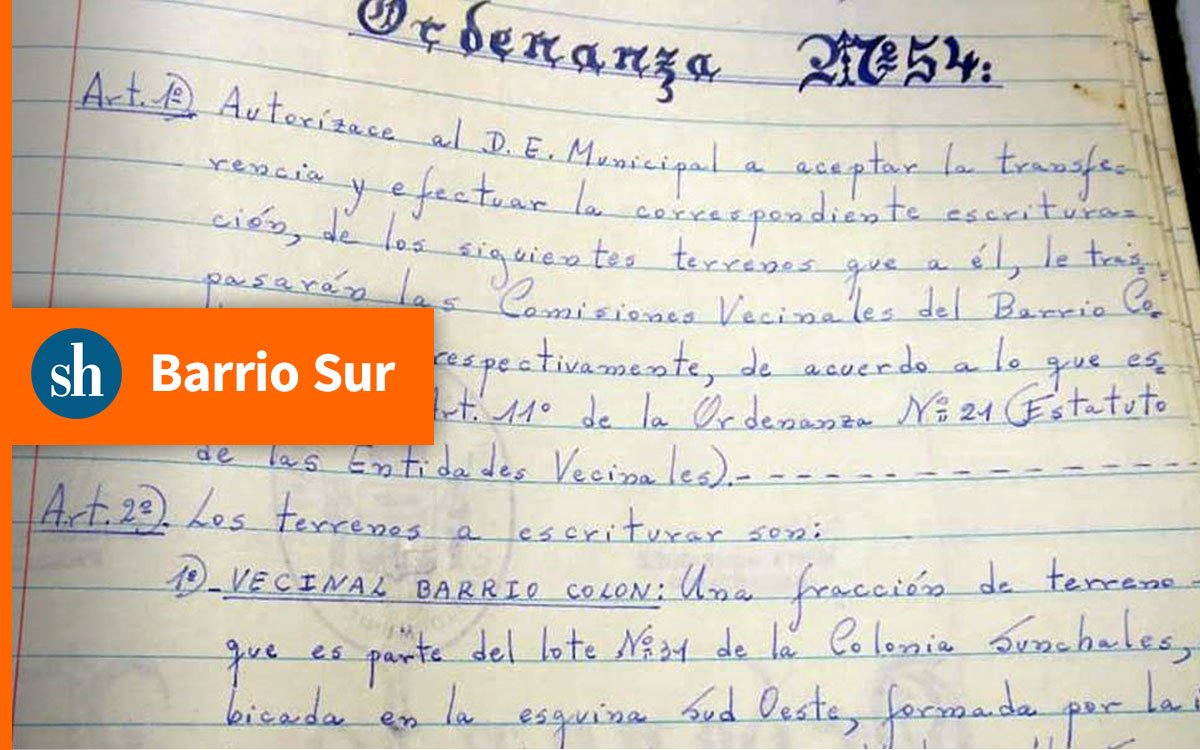 Ordenanza Nº 54:
Art. 1º) Autorízace al D. E. Municipal a aceptar la transfe=
rencia y efectuar la correspondiente escritura=
ción, de los siguientes terrenos que a él, le tras=
pasarán las Comisiones Vecinales del Barrio Co=
respectivamente, de acuerdo a lo que es=
Art. 11º de la Ordenanza Nº 21 (Estatuto
de las Entidades Vecinales).- - - - - - - - - - - - - - -
Art. 2º). Los terrenos a escriturar son:
1º)- VECINAL BARRIO COLON: Una fracción de terreno
que es parte del lote Nº 31 de la Colonia Sunchales,
bicada en la esquina Sud Oeste, formada por la
sh Barrio Sur